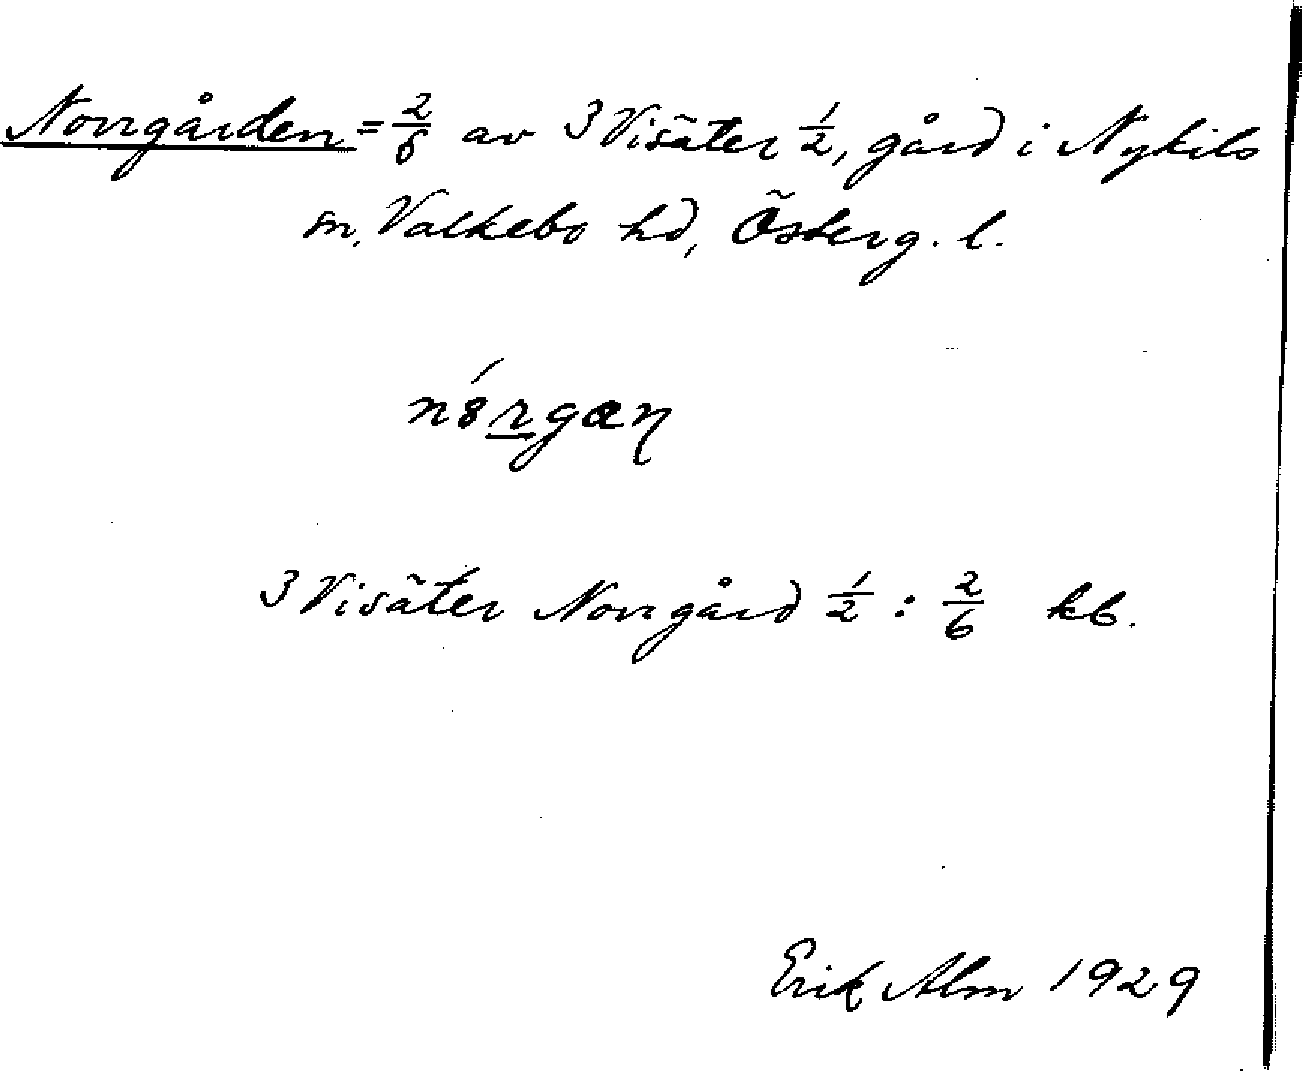 Norrgården = 2/6 av 3 Visäter 1/2, gård i Nykils
sn, Valkebo hd, Österg. l.
3 Visäter Norrgård 1/2 : 2/6 kb.
Erik Alm 1929